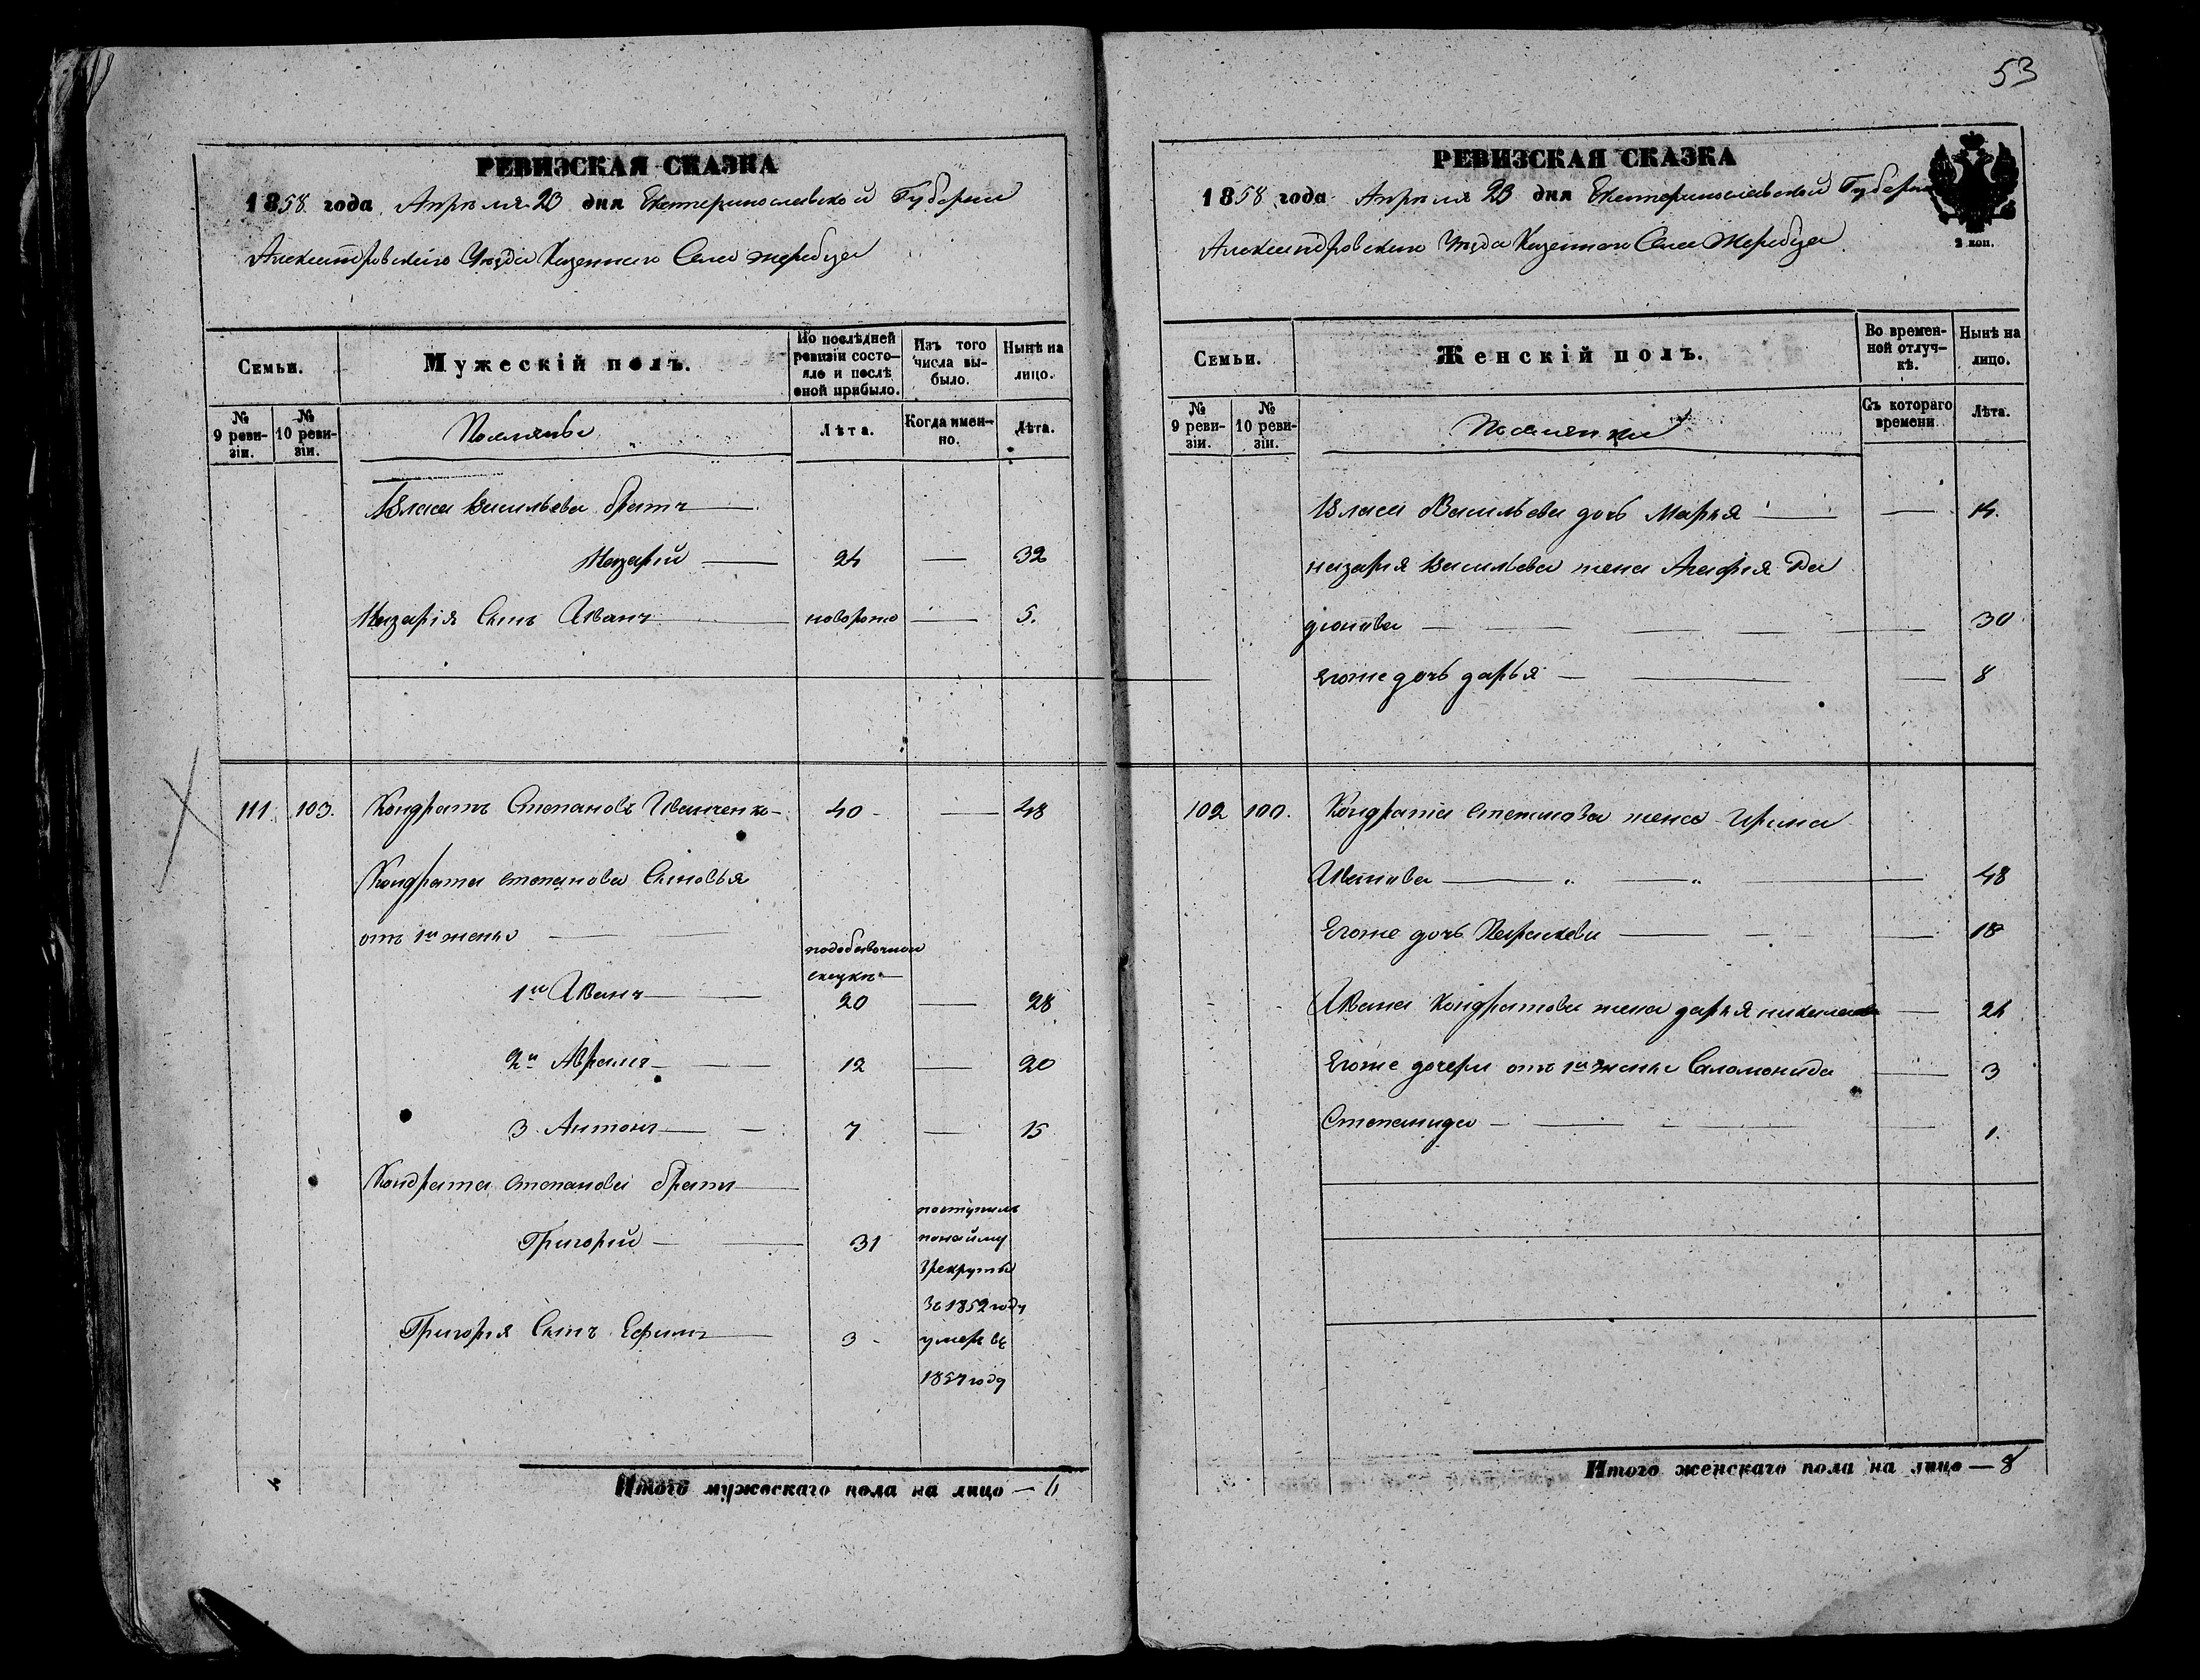 53
РЕВИЗСКАЯ СКАЗКА
1858 года Апреля 23 дня Екатеринославской Губернии
Александровского Уезда Казенного Села Жеребца
Семьи.
Мужескій полъ.
По послѣдней ревизіи состояло и послѣ оной прибыло.
Изъ того числа выбыло.
Нынѣ на лицо.
№ 9 ревизіи.
№ 10 ревизіи.
Поселяне
Лѣта.
Когда именно.
Лѣта.
Власа Васильева братъ
Назарій 24 — 32
Назарія Сынъ Иванъ новорож — 5.
111. 103. Кондратъ Степановъ Иванченко 40 — 48
Кондрата Степанова Сыновья
отъ 1й жены
подобавочной
скаске
1й Иванъ 20 — 28
2й Абрамъ 12 — 20
3 Антонъ 7 — 15
Кондрата Степанова братъ
Григорій 31 поступилъ
понайму
врекруты
в 1852 году
Григорія Сынъ Ефимъ 3 умеръ въ
1857 году
Итого мужескаго пола на лицо — 6
РЕВИЗСКАЯ СКАЗКА
1858 года Апреля 23 дня Екатеринославской Губерни
Александровского Уезда Казенного Села Жеребца
2 коп.
Семьи.
Женскій полъ.
Во временной отлучкѣ.
Нынѣ на лицо.
№ 9 ревизіи.
№ 10 ревизіи.
Поселянки
Съ котораго времени
Лѣта.
Власа Васильева дочь Марья — 14.
назария Васильева жена Агафия Ра
діонова 30
Егоже дочь дарья 8
102 100. Кондрата степанова жена Ирина
Иванова 48
Егоже дочь Параскева 18
Ивана Кондратова жена дарья николаева — 24
Егоже дочери отъ 1й жены Саломонида 3
Степанида 1.
Итого женскаго пола на лицо — 8